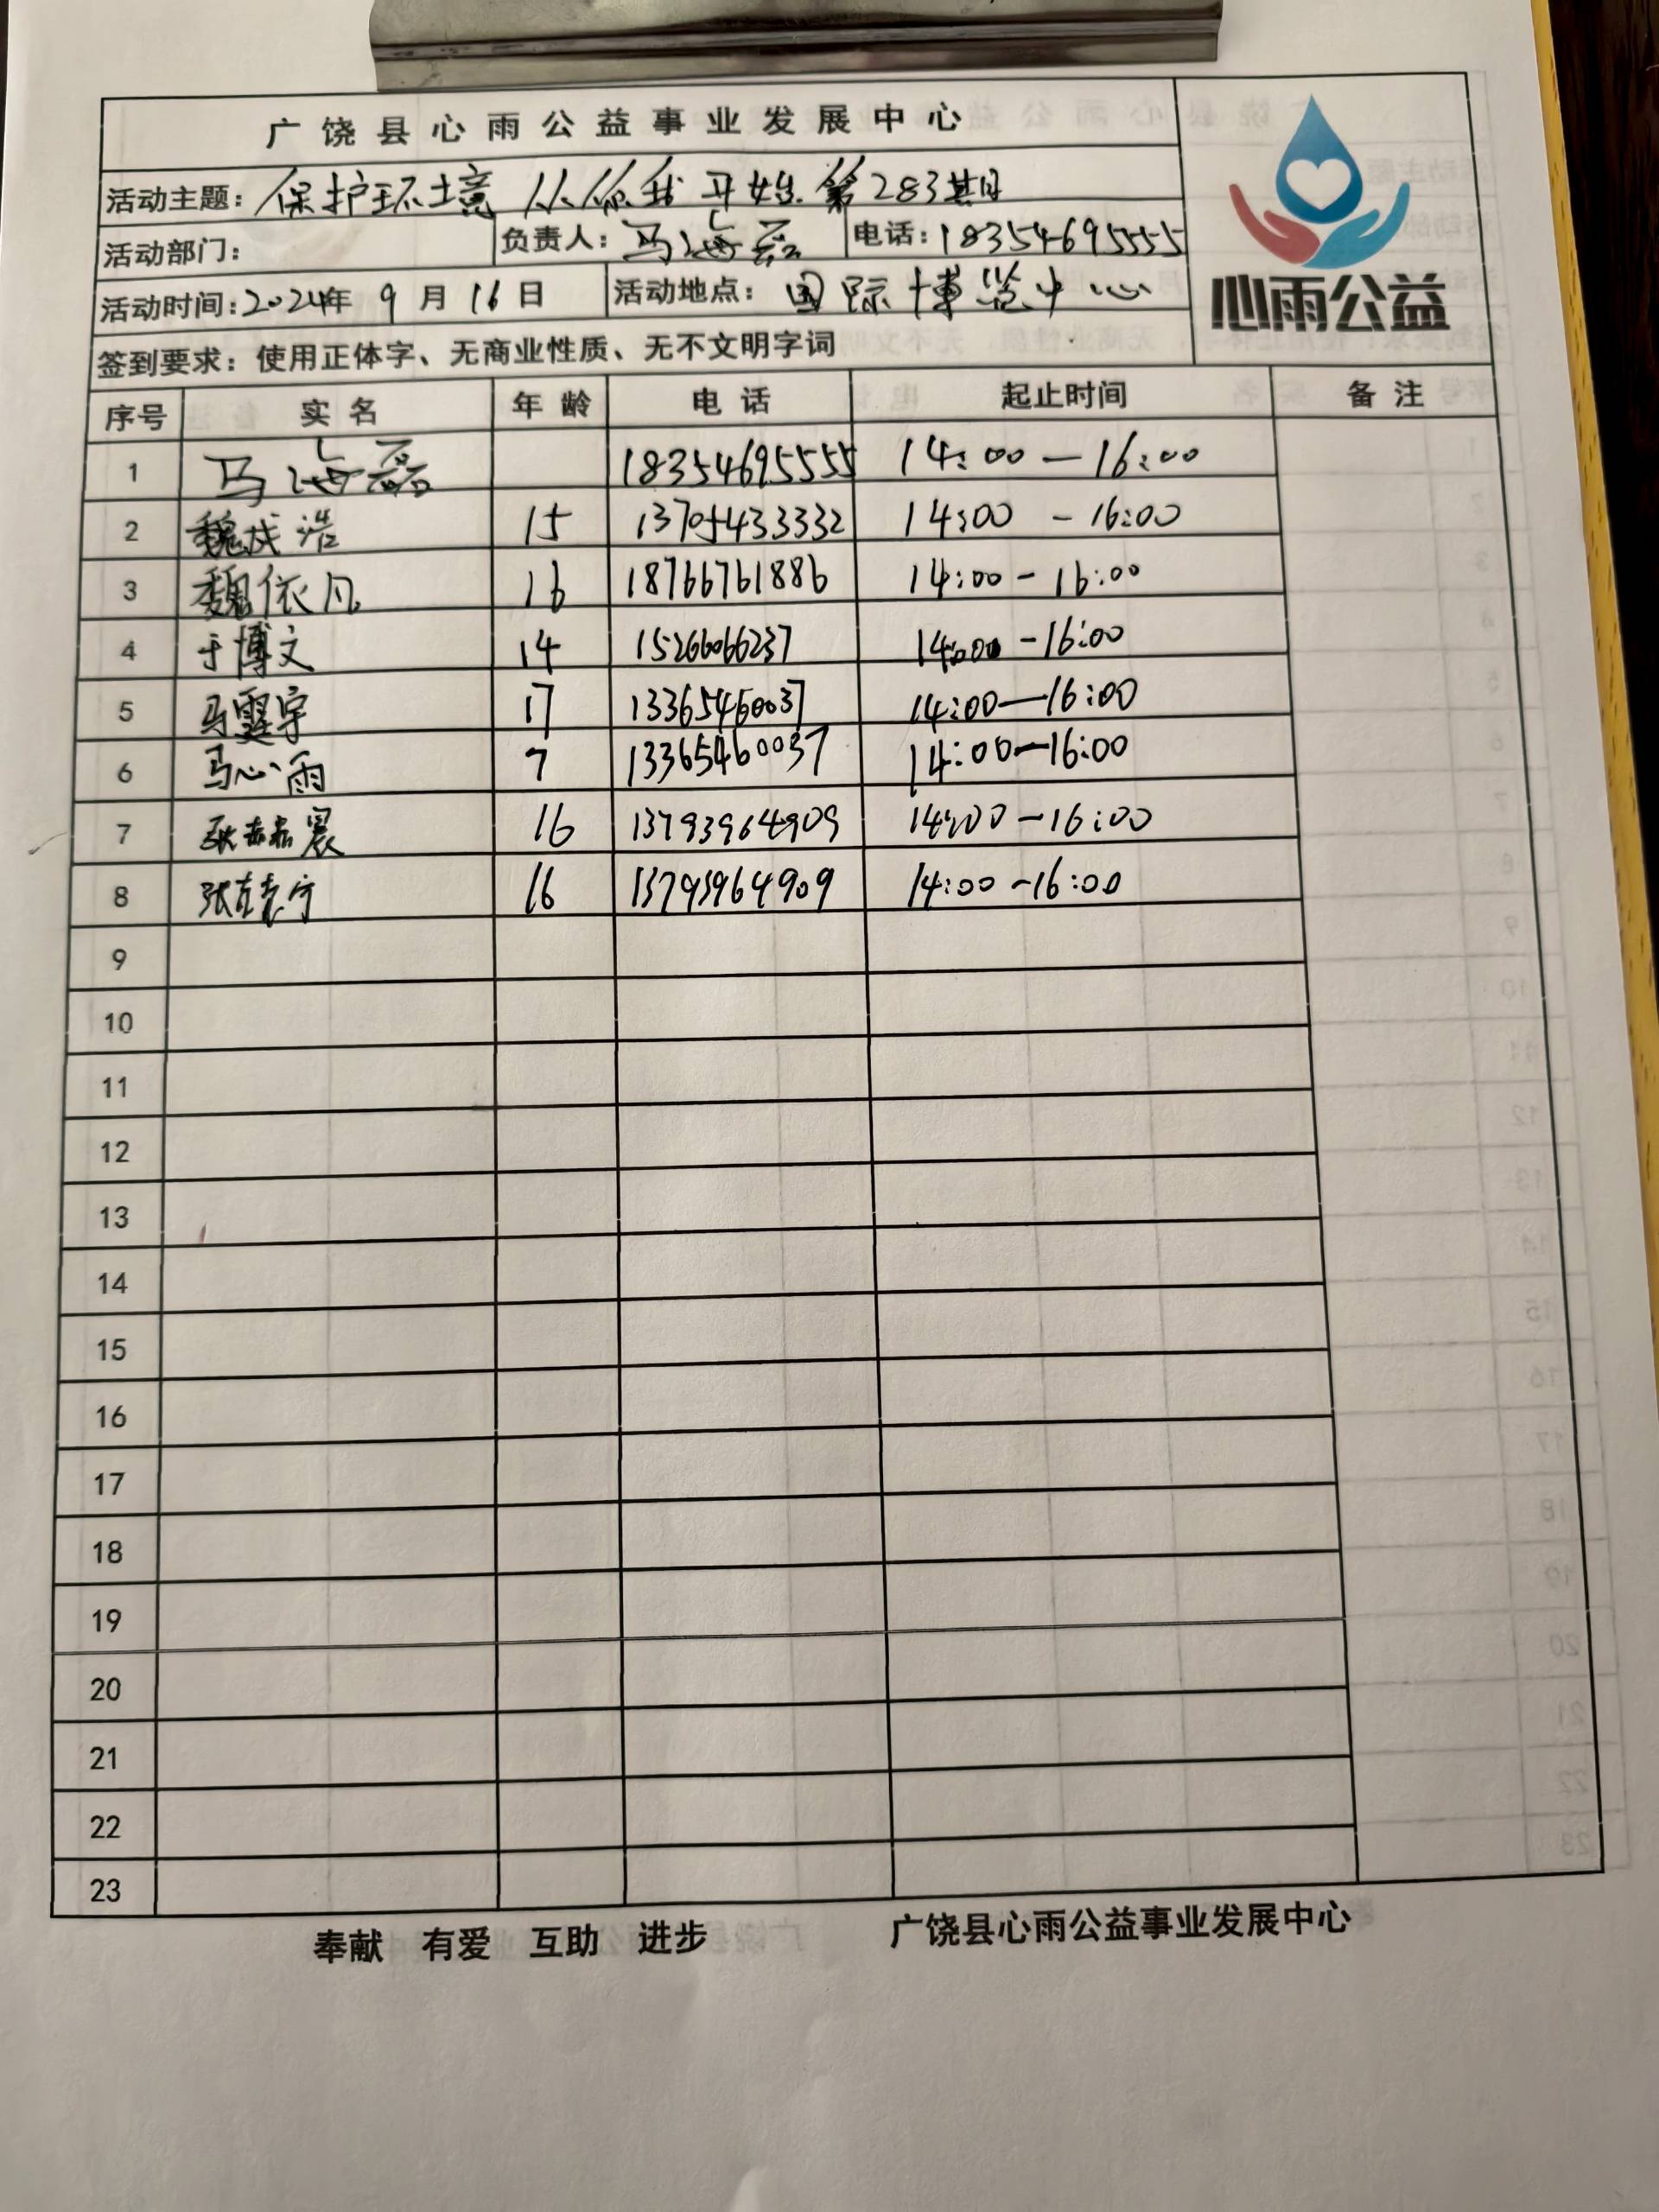 广饶县心雨公益事业发展中心
活动主题：保护环境 从你我开始 第283期
心雨公益
活动部门： 负责人：马海磊 电话：18354695555
活动时间：2024年 9 月 16 日 活动地点：国际博览中心
签到要求：使用正体字、无商业性质、无不文明字词
序号 实名 年龄 电话 起止时间 备注
1 马海磊 18354695555 14:00—16:00
2 魏成浩 15 13705433332 14:00-16:00
3 魏依凡 16 18766761886 14:00-16:00
4 于博文 14 15266066237 14:00-16:00
5 马霆宇 17 13365460037 14:00—16:00
6 马心雨 7 13365460037 14:00—16:00
7 16 13793964909 14:00-16:00
8 张 宁 16 13793964909 14:00-16:00
9
10
11
12
13
14
15
16
17
18
19
20
21
22
23
奉献 有爱 互助 进步 广饶县心雨公益事业发展中心